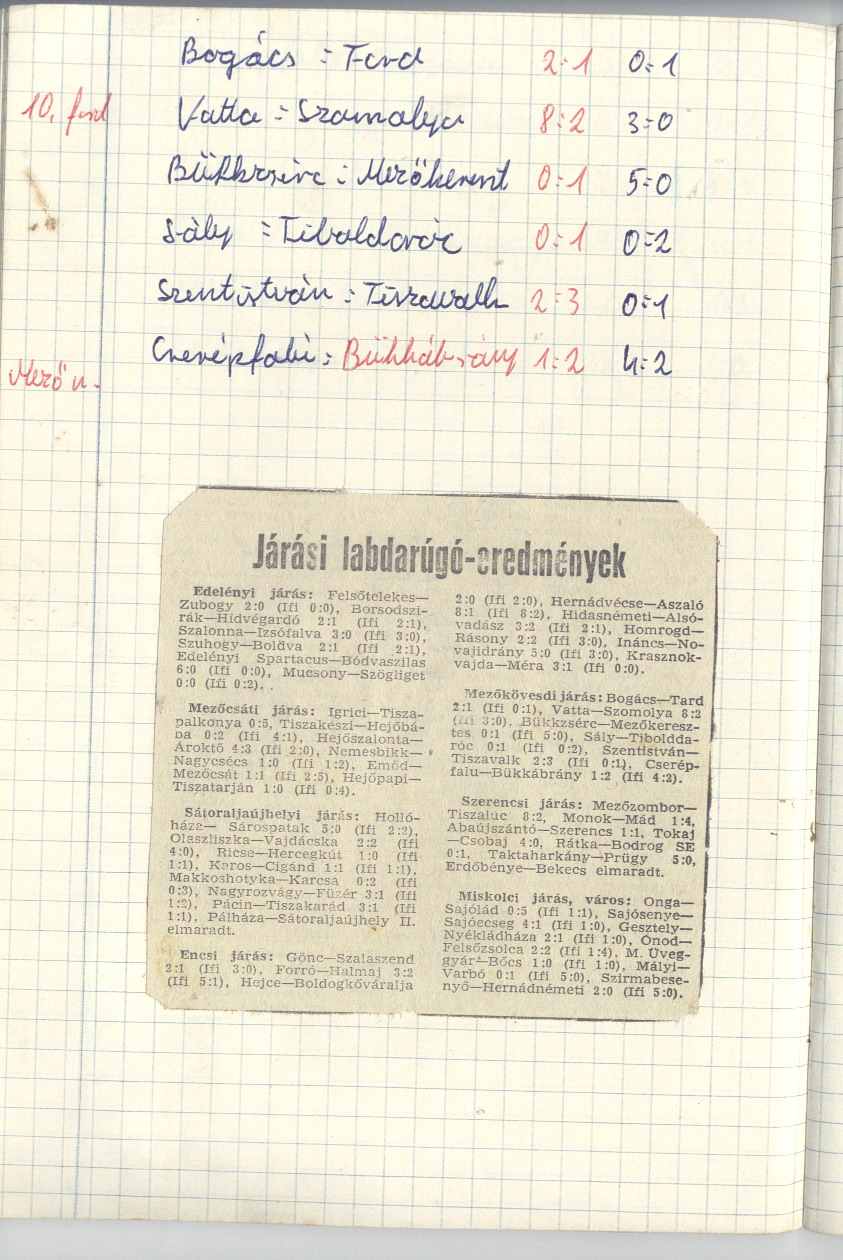 Bogács = Tard 2:1 0:1
10. ford Vatta = Szomolya 8:2 3:0
Bükkzsérc = Mezőkereszt 0:1 5:0
Sály = Tibolddaróc 0:1 0:2
Szentistván = Tiszavalk 2:3 0:1
Cserépfalu = Bükkábrány 1:2 4:2
Mezőn.
Járási labdarúgó-eredmények
Edelényi járás: Felsőtelekes—
Zubogy 2:0 (Ifi 0:0), Borsodszi-
rák—Hidvégardó 2:1 (Ifi 2:1),
Szalonna—Izsófalva 3:0 (Ifi 3:0),
Szuhogy—Boldva 2:1 (Ifi 2:1),
Edelényi Spartacus—Bódvaszilas
6:0 (Ifi 0:0), Mucsony—Szögliget
0:0 (Ifi 0:2).
Mezőcsáti járás: Igrici—Tisza-
palkonya 0:5, Tiszakeszi—Hejőbá-
ba 0:2 (Ifi 4:1), Hejőszalonta—
Ároktő 4:3 (Ifi 2:0), Nemesbikk—
Nagycsécs 1:0 (Ifi 1:2), Emőd—
Mezőcsát 1:1 (Ifi 2:5), Hejőpapi—
Tiszatarján 1:0 (Ifi 0:4).
Sátoraljaújhelyi járás: Holló-
háza— Sárospatak 5:0 (Ifi 2:2),
Olaszliszka—Vajdácska 2:2 (Ifi
4:0), Ricse—Hercegkút 1:0 (Ifi
1:1), Karos—Cigánd 1:1 (Ifi 1:1),
Makkoshotyka—Karcsa 0:2 (Ifi
0:3), Nagyrozvágy—Füzér 3:1 (Ifi
1:2), Pácin—Tiszakarád 3:1 (Ifi
1:1), Pálháza—Sátoraljaújhely II.
elmaradt.
Encsi járás: Gönc—Szalaszend
2:1 (Ifi 3:0), Forró—Halmaj 3:2
(Ifi 5:1), Hejce—Boldogkőváralja
2:0 (Ifi 2:0), Hernádvécse—Aszaló
8:1 (Ifi 8:2), Hidasnémeti—Alsó-
vadász 3:2 (Ifi 2:1), Homrogd—
Rásony 2:2 (Ifi 3:0), Ináncs—No-
vajidrány 5:0 (Ifi 3:0), Krasznok-
vajda—Méra 3:1 (Ifi 0:0).
Mezőkövesdi járás: Bogács—Tard
2:1 (Ifi 0:1), Vatta—Szomolya 8:2
(Ifi 3:0), Bükkzsérc—Mezőkeresz-
tes 0:1 (Ifi 5:0), Sály—Tiboldda-
róc 0:1 (Ifi 0:2), Szentistván—
Tiszavalk 2:3 (Ifi 0:1), Cserép-
falu—Bükkábrány 1:2 (Ifi 4:2).
Szerencsi járás: Mezőzombor—
Tiszalúc 8:2, Monok—Mád 1:4,
Abaújszántó—Szerencs 1:1, Tokaj
—Csobaj 4:0, Rátka—Bodrog SE
0:1, Taktaharkány—Prügy 5:0,
Erdőbénye—Bekecs elmaradt.
Miskolci járás, város: Onga—
Sajólád 0:5 (Ifi 1:1), Sajósenye—
Sajóecseg 4:1 (Ifi 1:0), Gesztely—
Nyékládháza 2:1 (Ifi 1:0), Ónod—
Felsőzsolca 2:2 (Ifi 1:4), M. Üveg-
gyár—Bőcs 1:0 (Ifi 1:0), Mályi—
Varbó 0:1 (Ifi 5:0), Szirmabese-
nyő—Hernádnémeti 2:0 (Ifi 5:0).